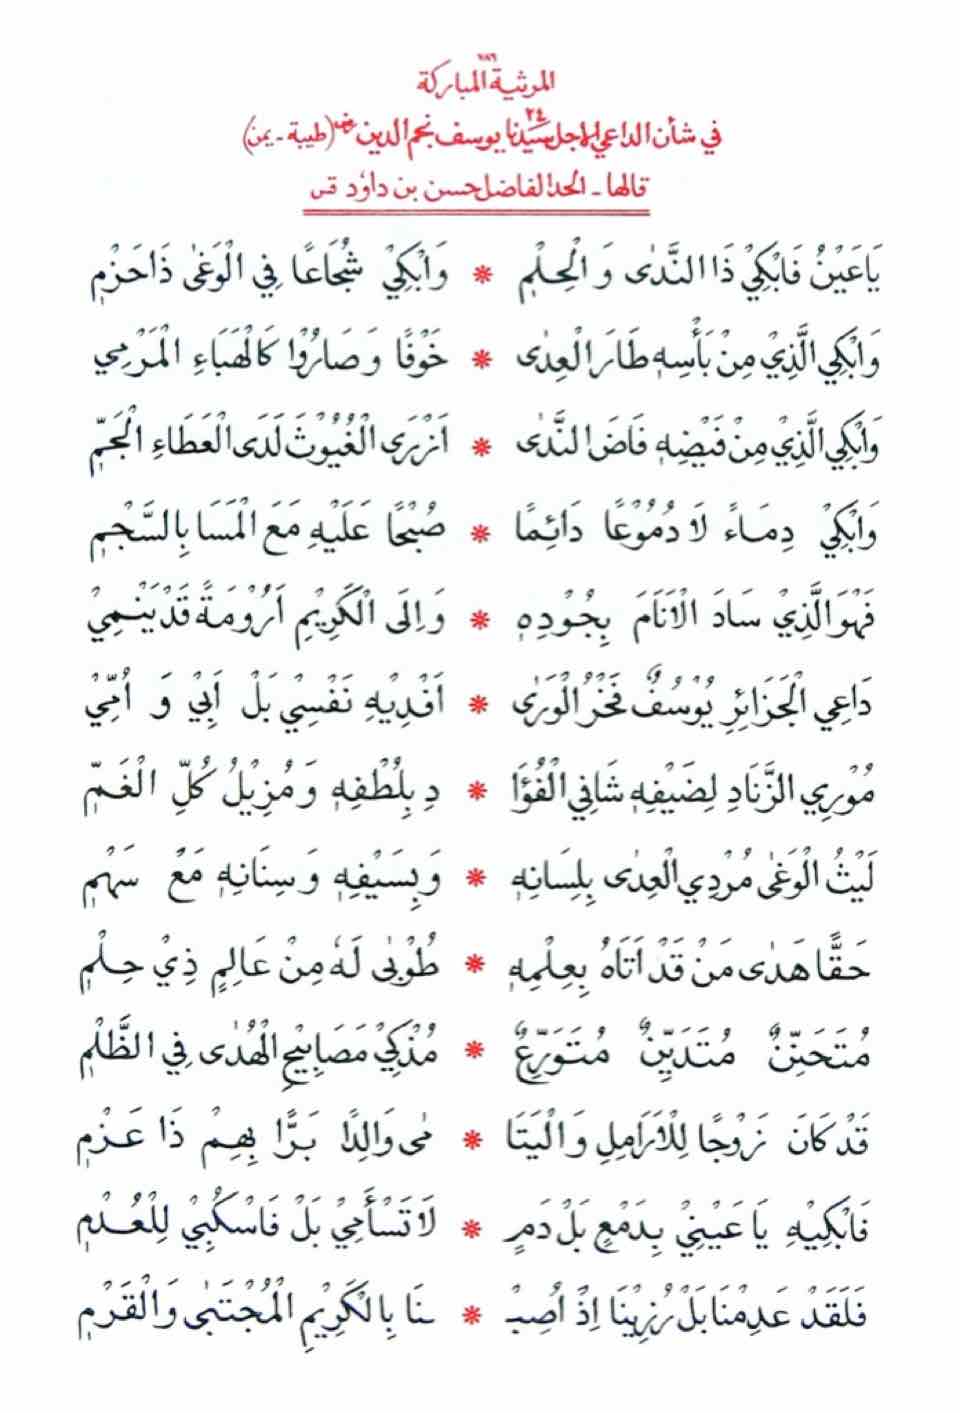 ٧٨٦
المرثية المباركة
في شأن الداعي الاجل سيدنا ٢٤ يوسف نجم الدين رض (طيبة - يمن)
قالها - الحد الفاضل حسن بن داود قس
يَا عَيْنُ فَابْكِيْ ذَا النَّدٰى وَ الْحِلْمِ * وَابْكِيْ شُجَاعًا فِي الْوَغٰى ذَا حَزْمِ
وَابْكِي الَّذِيْ مِنْ بَأْسِهٖ طَارَ الْعِدٰى * خَوْفًا وَ صَارُوْا كَالْهَبَاءِ الْمَرْمِيْ
وَابْكِي الَّذِيْ مِنْ فَيْضِهٖ فَاضَ النَّدٰى * اَزْرَى الْغُيُوْثَ لَدَى الْعَطَاءِ الْجَمِّ
وَابْكِيْ دِمَاءً لَا دُمُوْعًا دَائِمًا * صُبْحًا عَلَيْهِ مَعَ الْمَسَا بِالسَّجْمِ
فَهْوَ الَّذِيْ سَادَ الْاَنَامَ بِجُوْدِهٖ * وَاِلَى الْكَرِيْمِ اَرُوْمَةً قَدْ يَنْمِيْ
دَاعِي الْجَزَائِرِ يُوْسُفٌ فَخْرُ الْوَرٰى * اَفْدِيْهِ نَفْسِيْ بَلْ اَبِيْ وَ اُمِّيْ
مُوْرِي الزَّنَادِ لِضَيْفِهٖ شَافِي الْفُؤَا * دِ بِلُطْفِهٖ وَ مُزِيْلُ كُلِّ الْغَمِّ
لَيْثُ الْوَغٰى مُرْدِي الْعِدٰى بِلِسَانِهٖ * وَ بِسَيْفِهٖ وَ سِنَانِهٖ مَعْ سَهْمِ
حَقًّا هَدٰى مَنْ قَدْ اَتَاهُ بِعِلْمِهٖ * طُوْبٰى لَهٗ مِنْ عَالِمٍ ذِيْ حِلْمِ
مُتَحَنِّنٌ مُتَدَيِّنٌ مُتَوَرِّعٌ * مُذْكِيْ مَصَابِيْحِ الْهُدٰى فِي الظَّلْمِ
قَدْ كَانَ زَوْجًا لِلْاَرَامِلِ وَ الْيَتَا * مٰى وَالِدًا بَرًّا بِهِمْ ذَا عَزْمِ
فَابْكِيْهِ يَا عَيْنِيْ بِدَمْعٍ بَلْ دَمٍ * لَا تَسْأَمِيْ بَلْ فَاسْكُبِيْ لِلْعُدْمِ
فَلَقَدْ عَدِمْنَا بَلْ رُزِيْنَا اِذْ اُصِبْـ * ـنَا بِالْكَرِيْمِ الْمُجْتَبٰى وَالْقَرْمِ